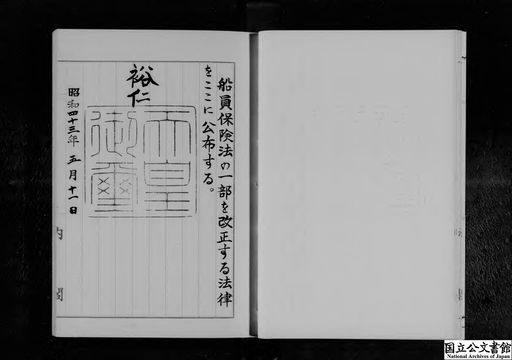 船員保険法の一部を改正する法律
をここに公布する。
裕仁
天皇
御璽
昭和四十三年五月十一日
内閣
国立公文書館
National Archives of Japan